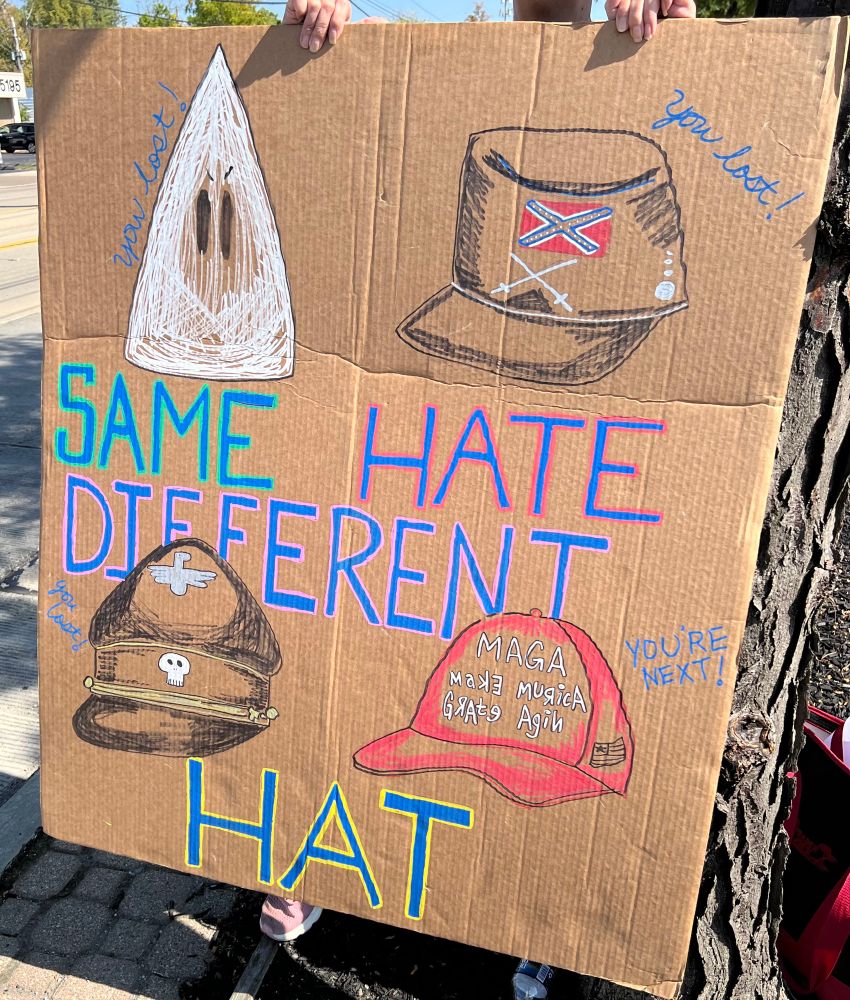 5195
you lost!
you lost!
SAME HATE
DIFFERENT
you
lost!
MAGA
MAKE MURICA
GRATE AGIN
YOU'RE
NEXT!
HAT